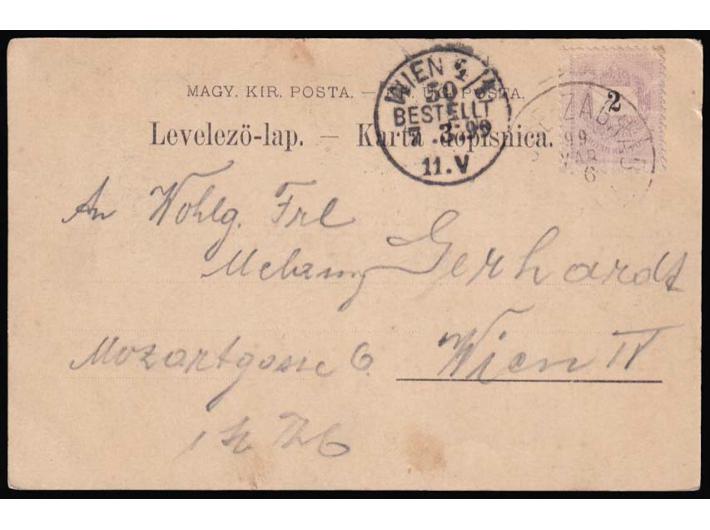 MAGY. KIR. POSTA. —
Levelezö-lap. — Karta dopisnica.
WIEN 4/1
50
BESTELLT
7.3.99
11.V
2
ZAGRAB
99
MAR
6
An Wohlg. Frl
Gerhardt
Mozartgasse 6. Wien IV